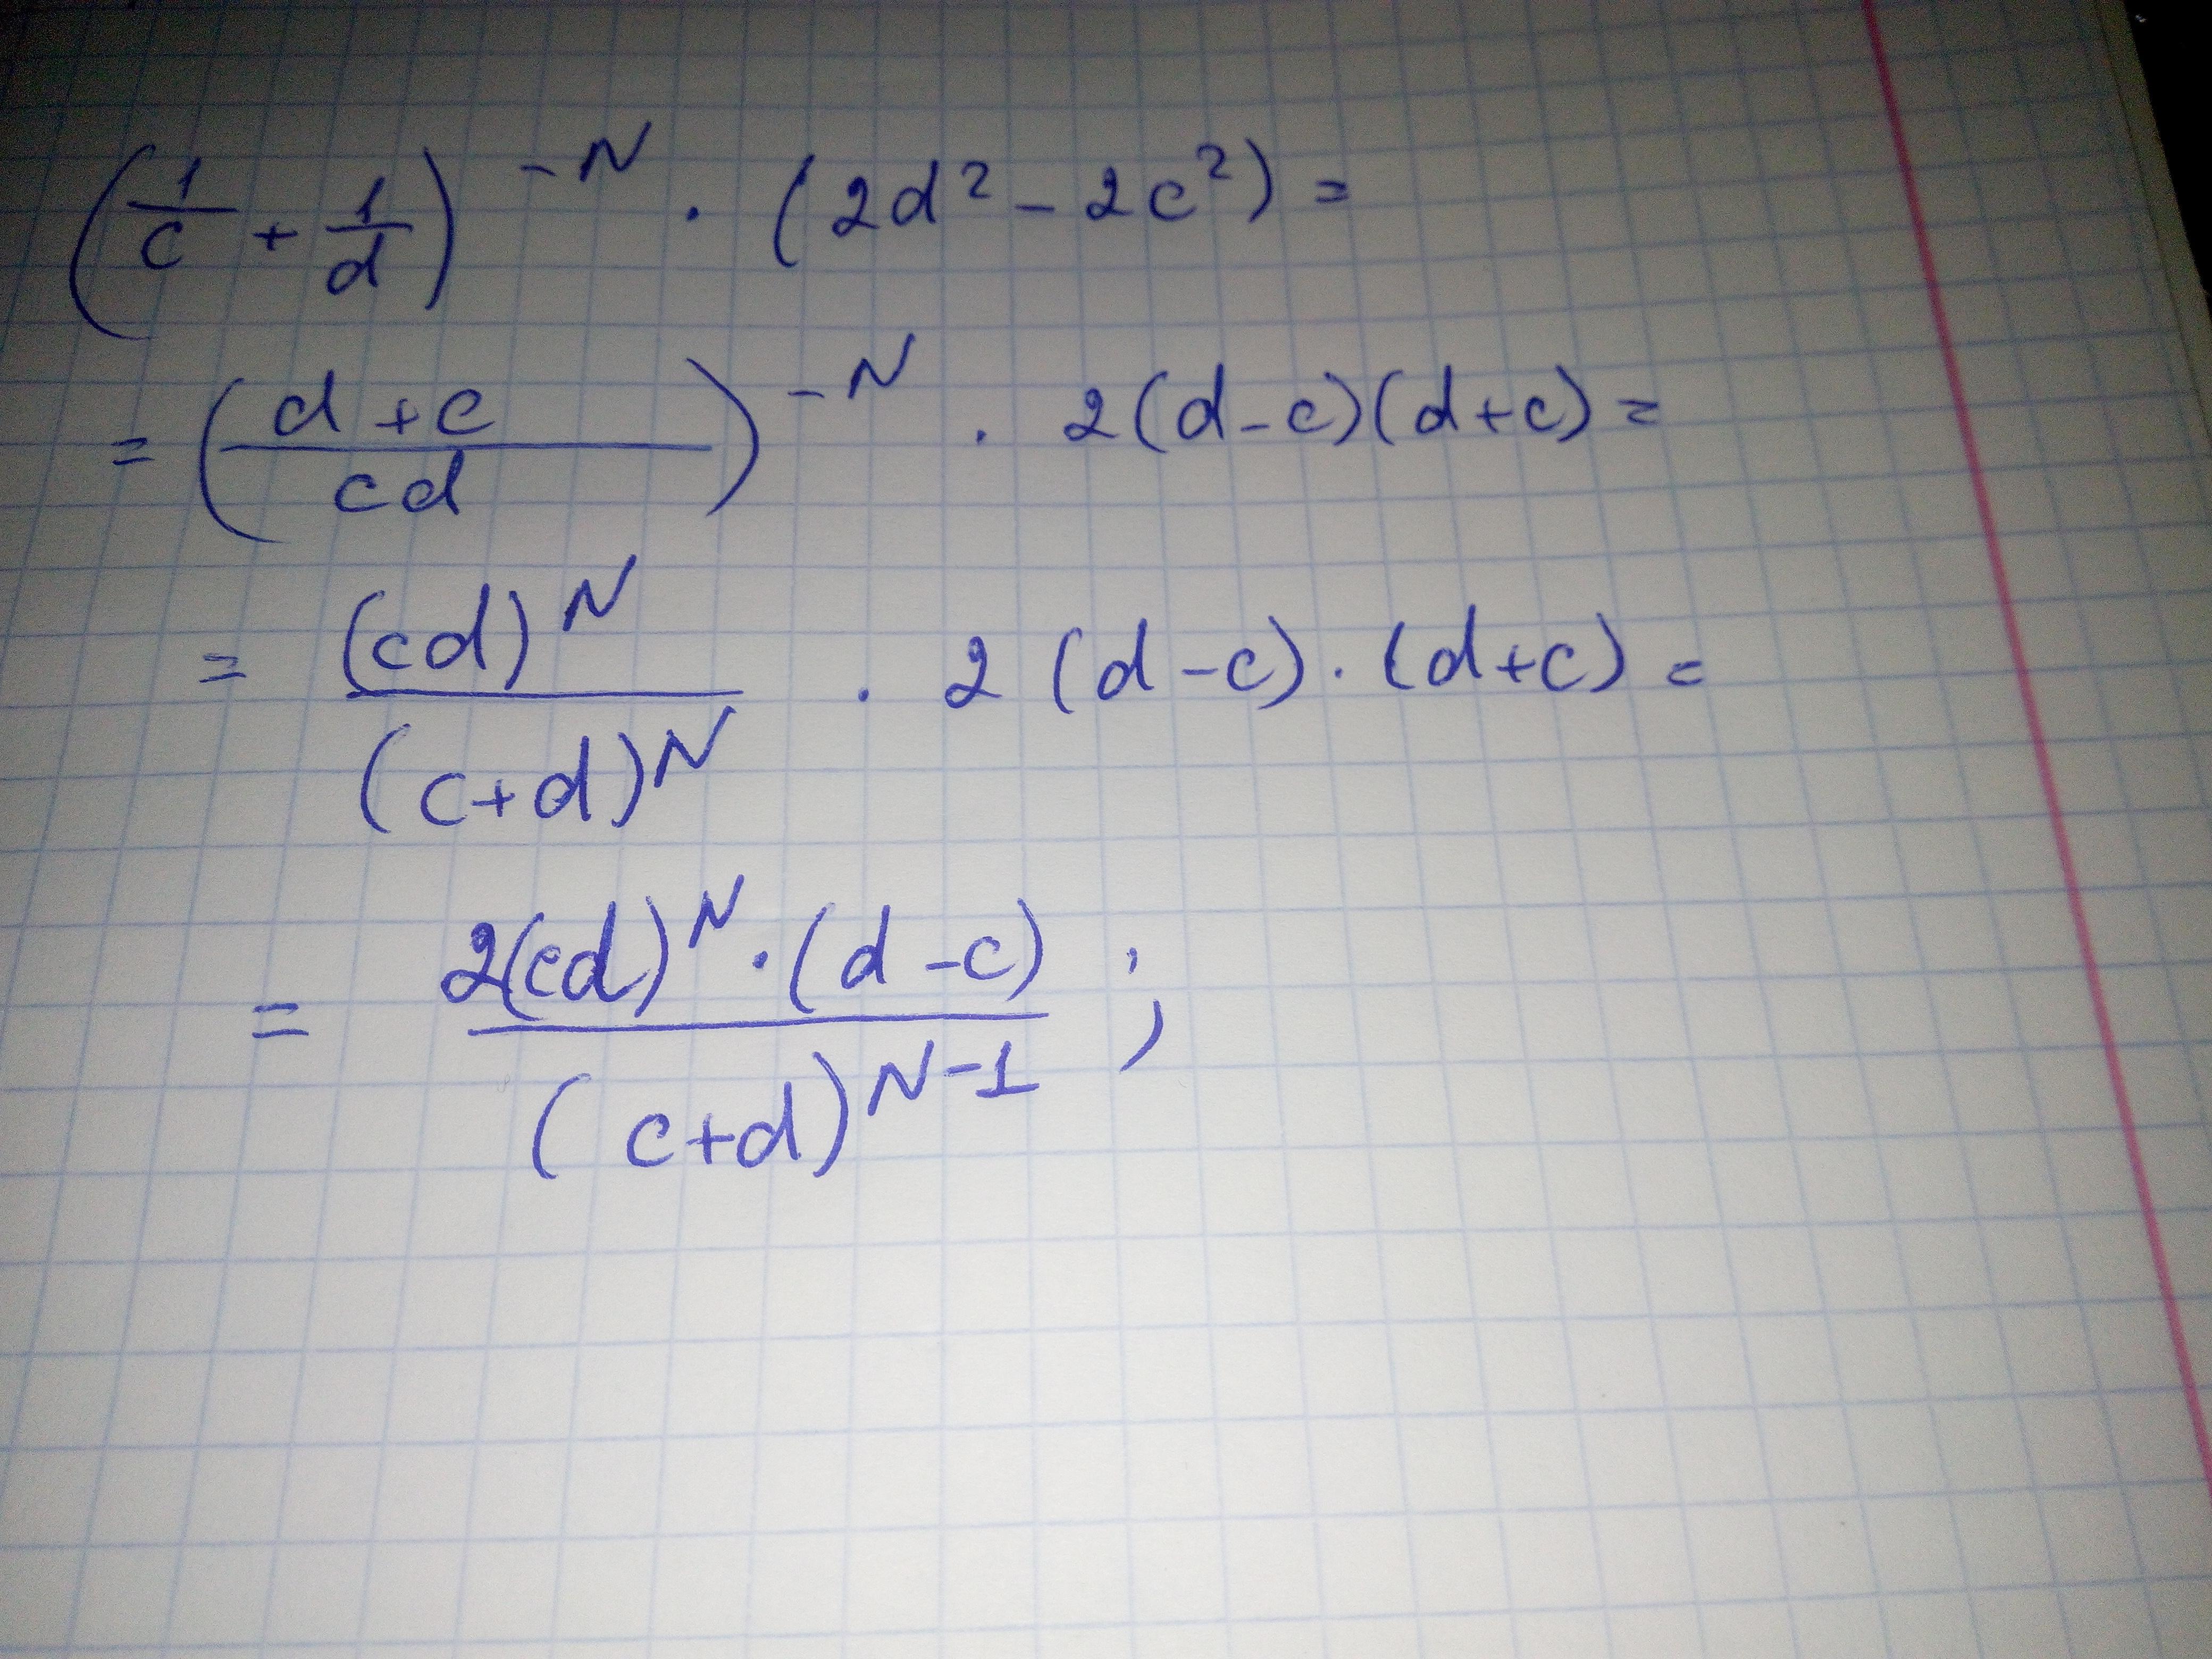 (1/c + 1/d)^-N · (2d² - 2c²) =
= (d+c / cd)^-N · 2(d-c)(d+c) =
= (cd)^N / (c+d)^N · 2(d-c)·(d+c) =
= 2(cd)^N · (d-c) / (c+d)^N-1 ;